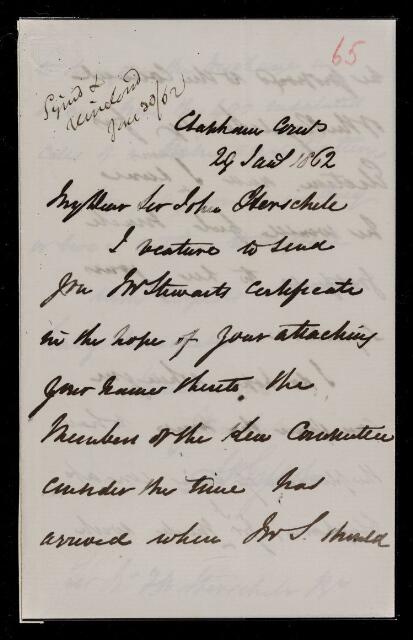 65
Signed &
returned
Jan 30/62
Clapham Comn
29 Jany 1862
My Dear Sir John Herschele
I venture to send
you Mr Stewarts Certificate
in the hope of your attaching
your name thereto. the
Members of the Kew Committee
consider the time has
arrived when Mr S. should